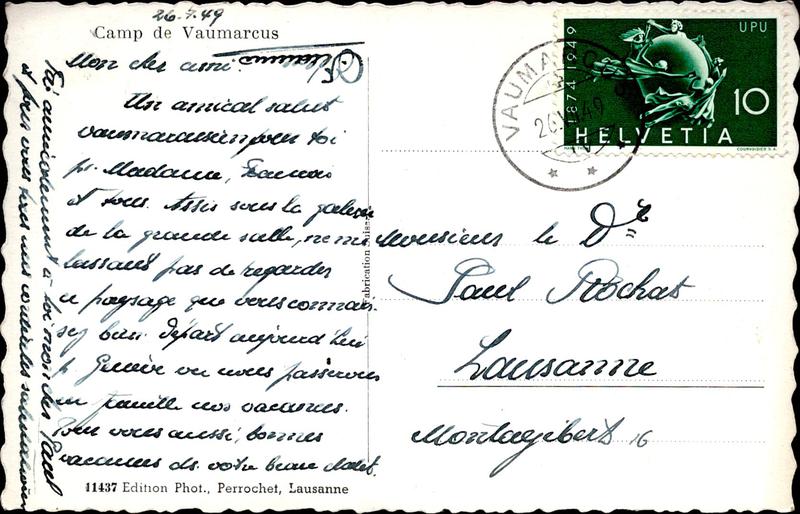 26.7.49
Camp de Vaumarcus
Mon cher ami.
Un amical salut
vaumarcusien pour toi
pr. Madame, Francois
et tous. Assis sous la galerie
de la grande salle, ne me
lassant pas de regarder
ce paysage que vous connais-
sez bien. Départ aujourd'hui
p. Genève où nous passerons
en famille nos vacances.
Pour vous aussi, bonnes
vacances ds. votre beau chalet.
Très amicalement à toi mon cher Paul
et pour vous
11437 Edition Phot., Perrochet, Lausanne
Fabrication Suisse
VAUMARCUS
26.VII.49
1874 1949
UPU
10
HELVETIA
COURVOISIER S.A.
Monsieur le Dr
Paul Rochat
Lausanne
Montagibert 16